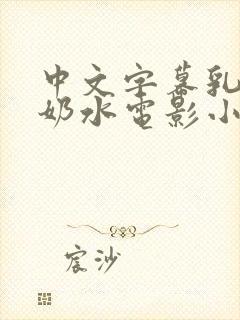 中文字幕乳
奶水电影小
宸沙